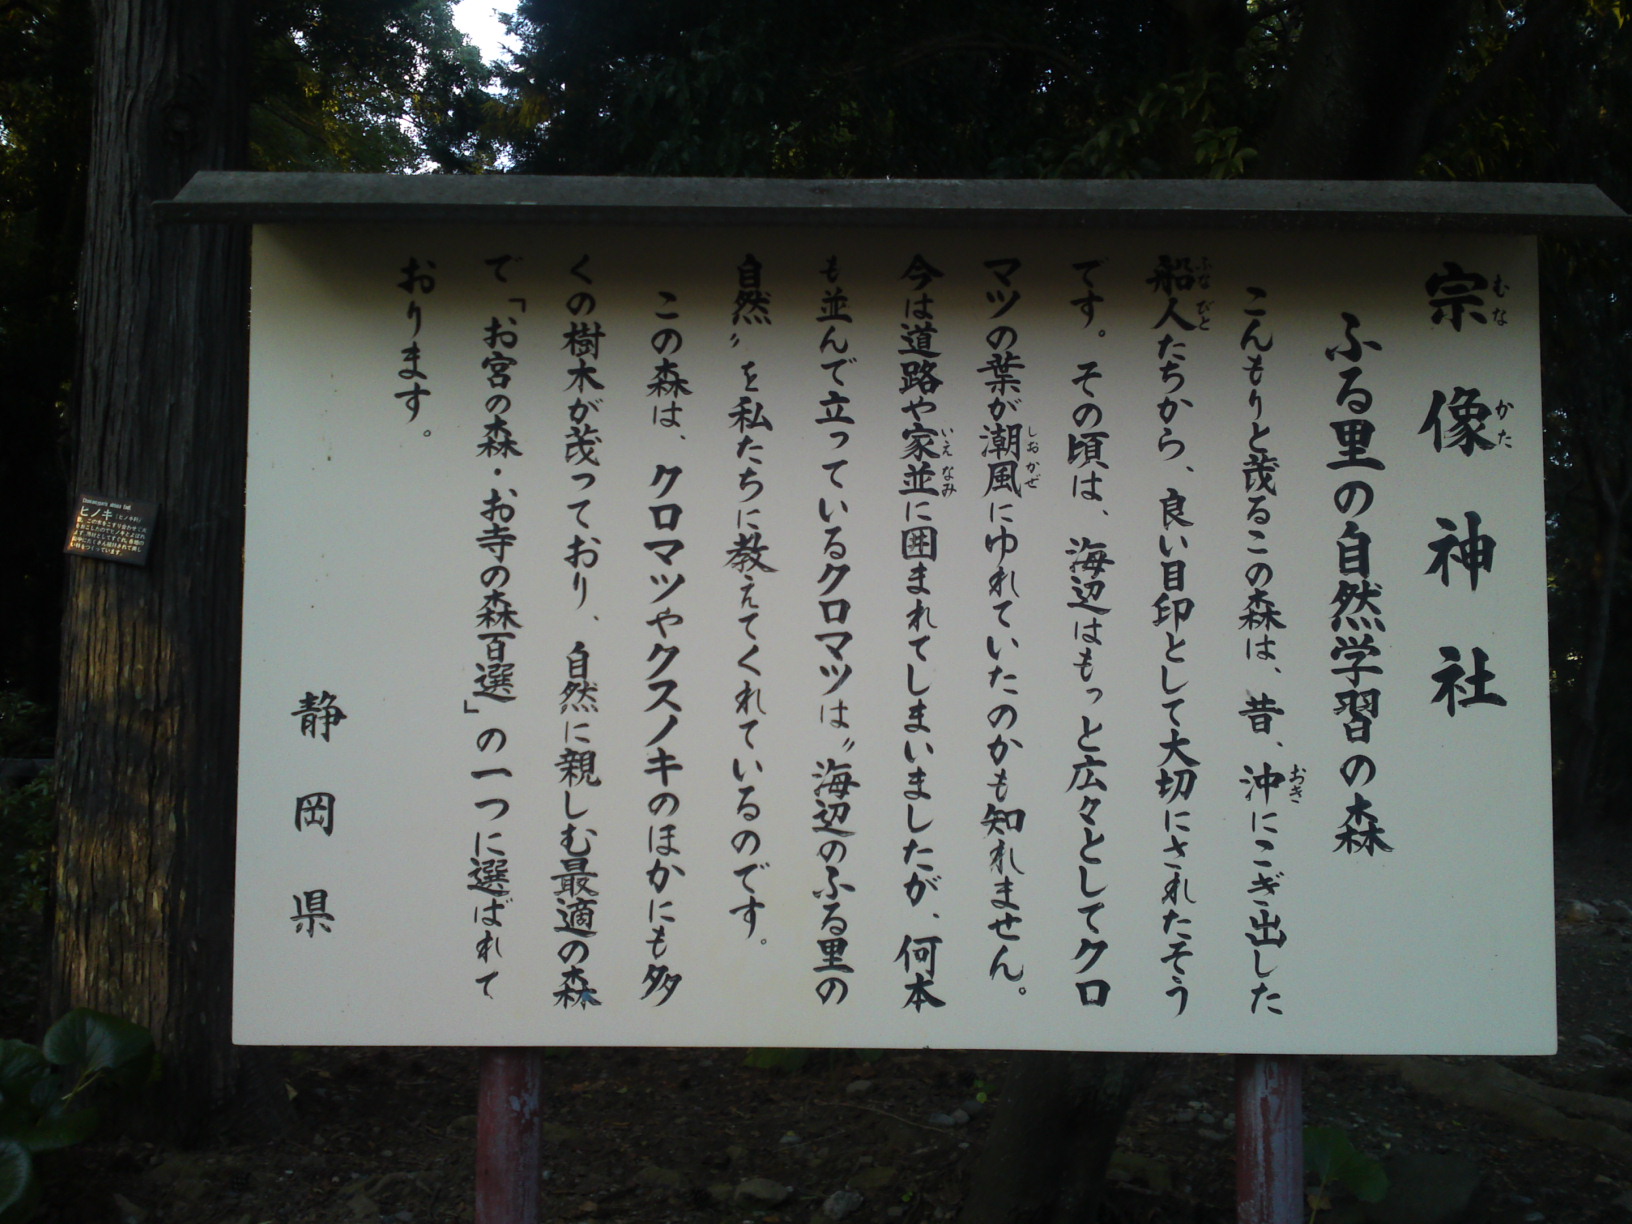 宗像神社
むなかた
ふる里の自然学習の森
こんもりと茂るこの森は、昔、沖にこぎ出した
おき
船人たちから、良い目印として大切にされたそう
ふなびと
です。その頃は、海辺はもっと広々としてクロ
マツの葉が潮風にゆれていたのかも知れません。
しおかぜ
今は道路や家並に囲まれてしまいましたが、何本
いえなみ
も並んで立っているクロマツは〝海辺のふる里の
自然〟を私たちに教えてくれているのです。
この森は、クロマツやクスノキのほかにも多
くの樹木が茂っており、自然に親しむ最適の森
で「お宮の森・お寺の森百選」の一つに選ばれて
おります。
静岡県
ヒノキ(ヒノキ科)